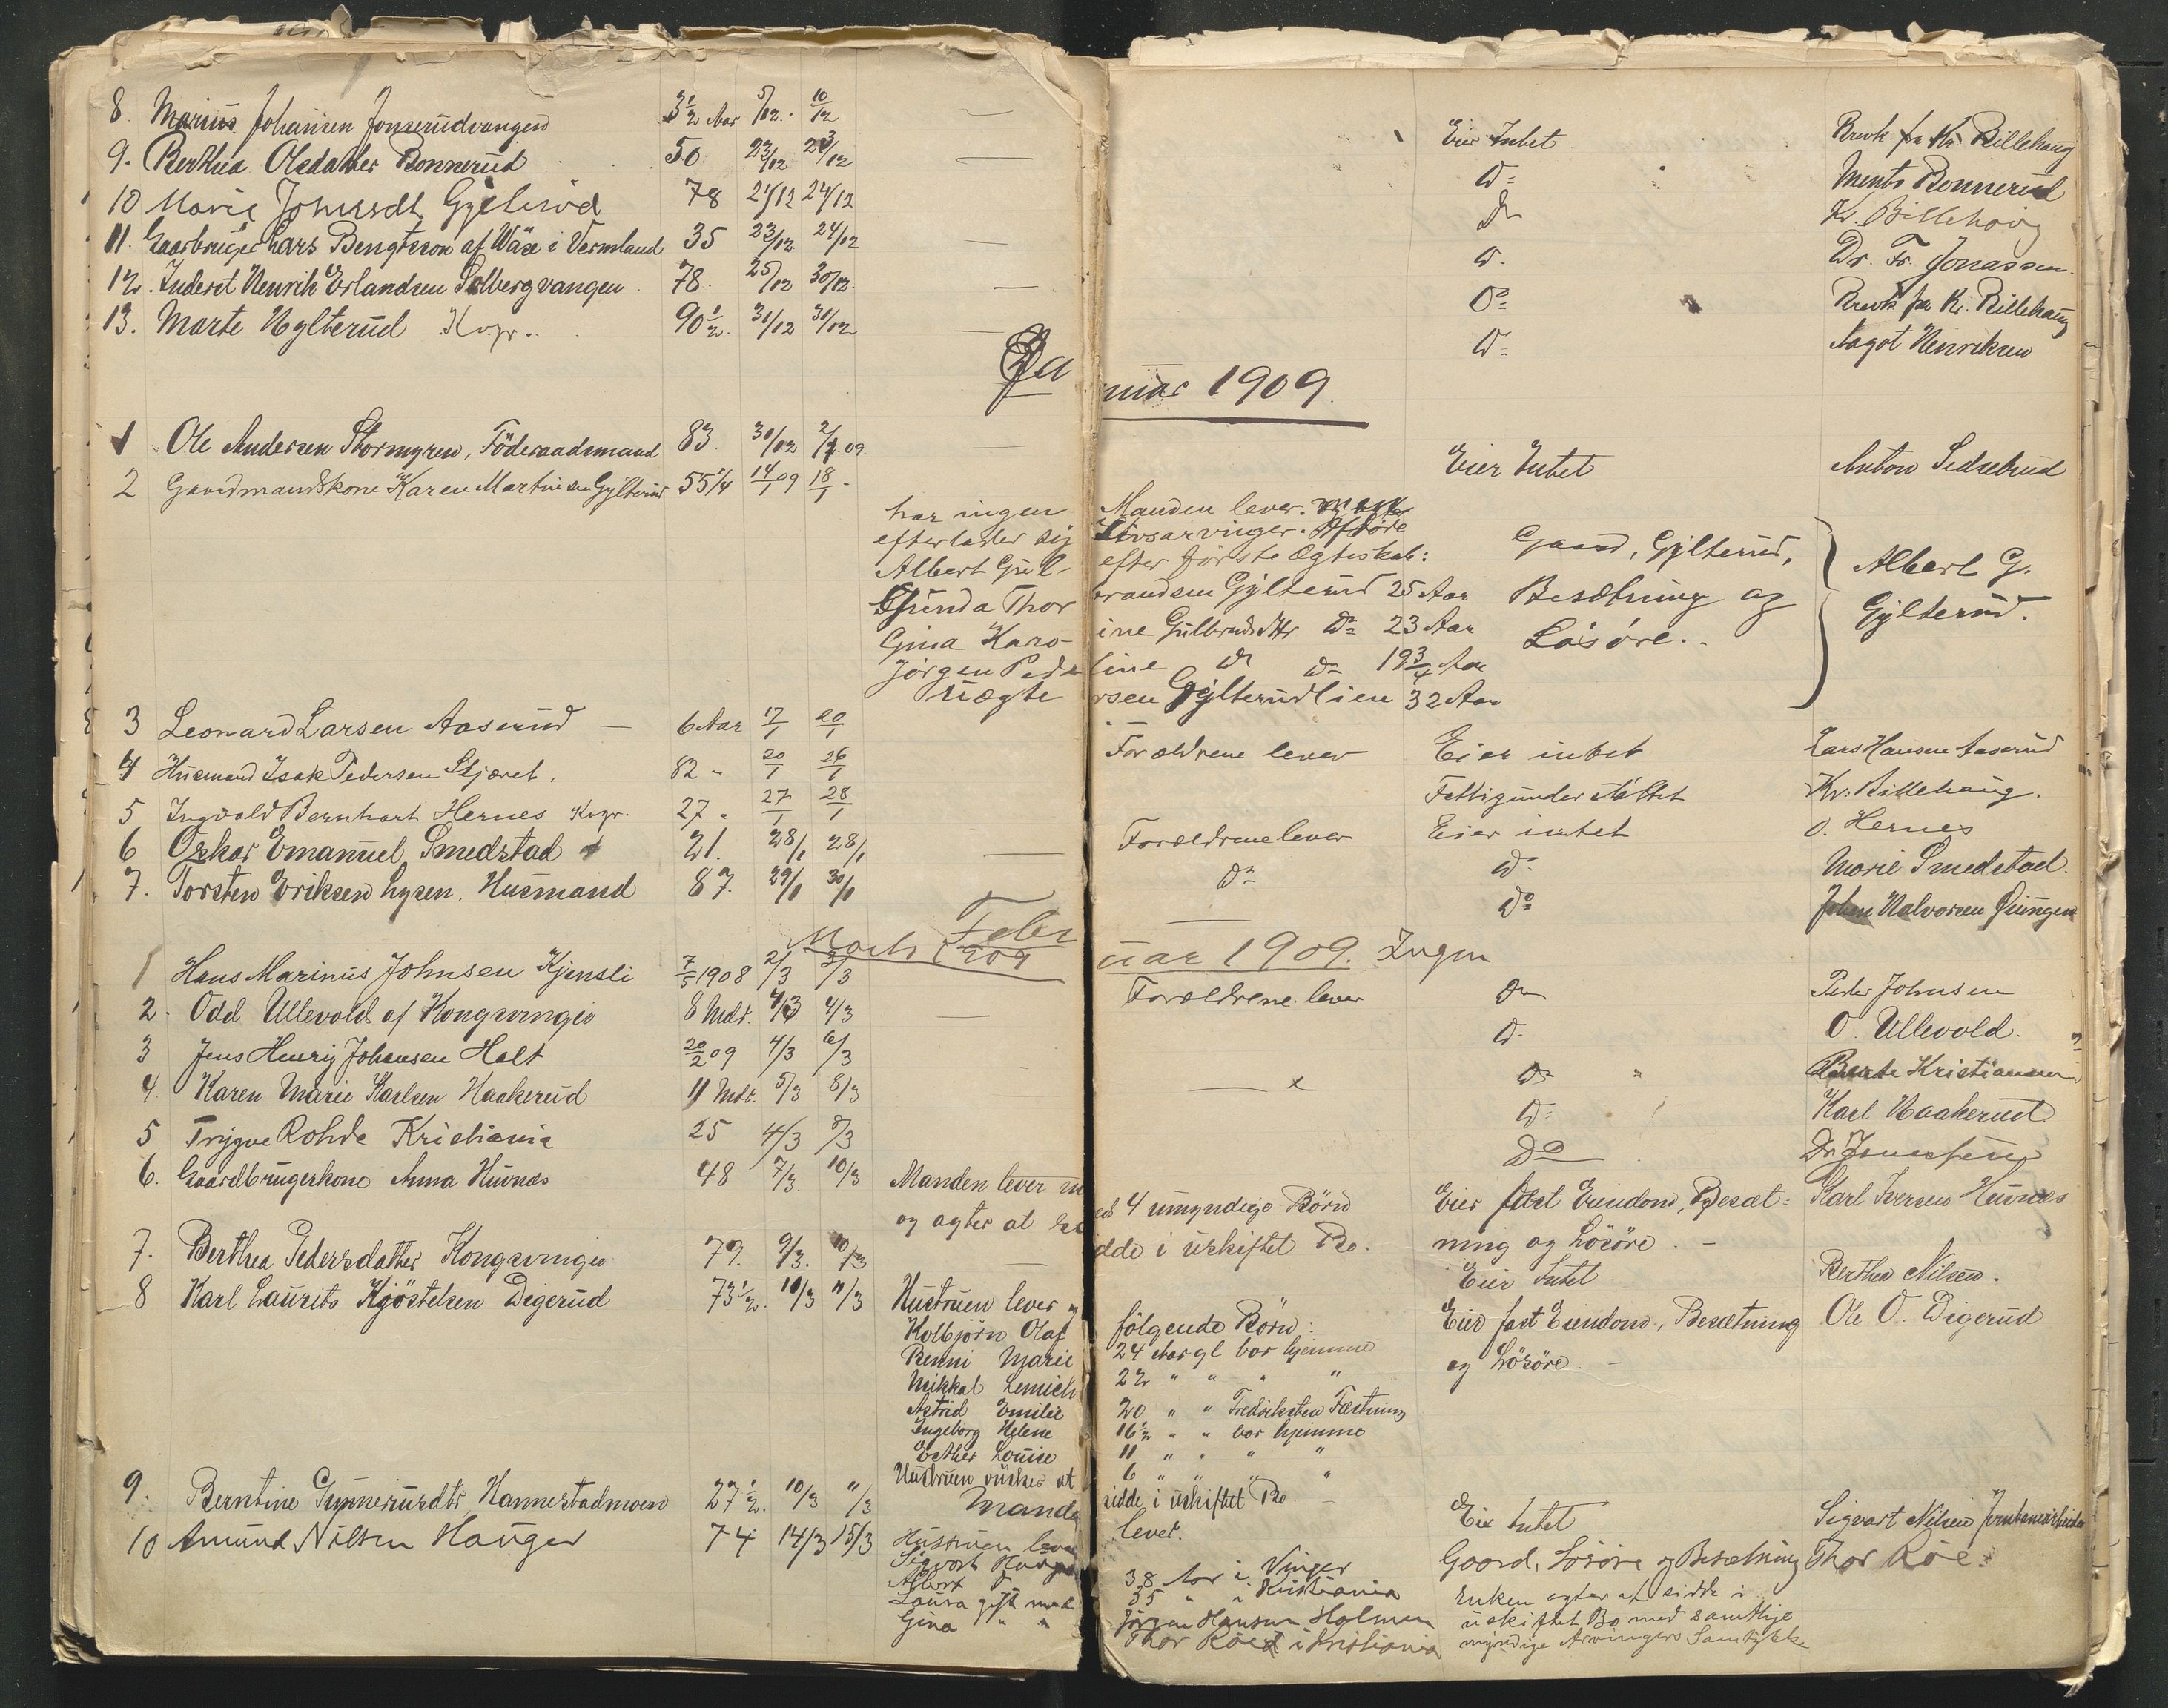 8. Marius Johansen Jonserudvangen 3½ Aar 5/12. 10/12 — Eier Intet. Brevk. fra Kr. Billehaug
9. Berthea Olsdatter Bonnerud 50 23/12 23/12 — D= Ments Bonnerud
10 Marie Johnsdt. Gylterud 78 21/12 24/12 Do Kr. Billehoug
11. Gaarbruger Lars Bengtsson af Wäse i Vermland 35 23/12 24/12 — D. Dr. Fr. Jonassen.
12. Inderst Henrik Erlandsen Solbergvangen 78. 25/12 30/12. — Do= Brevk. fra Kr. Billehaug
13. Marte Hylterud Kvgr. 90½. 31/12 31/12 — D= Aagot Henriksen
Januar 1909.
1 Ole Andersen Stormyren, Föderaadsmand 83 30/12 2/1 09 — Eier Intet Anton Sedsebrud
2 Gaardmandskone Karen Martinsen Gylterud 55 1/4 14/1 09 18/1 -
Manden lever.
har ingen Livsarvinger. Afföre
efterlader sig efter förste Ægteskab: Gaard, Gylterud,
Albert Gulbrandsen Gylterud 25 Aar Besætning og Albert G.
Gunda Thorine Gulbrandsdtr Do 23 Aar Lösöre. - Gylterud.
Gina Karoline Do Do 19 3/4 Aar
Jörgen Pedersen Gylterudlien 32 Aar
uægte
3 Leonard Larsen Aaserud — 6 Aar 17/1 20/1 Forældrene lever Eier intet Lars Hansen Aaserud
4 Husmand Isak Pedersen Skjæret. 82 - 20/1 26/1 Fattigunderstöttet Kr. Billehaug.
5 Ingvald Bernhart Hernes Kvgr. 27 - 27/1 28/1 Forældrene lever Eier intet O. Hernes
6 Oskar Emanuel Smedstad 21. 28/1 28/1 — Do D- Marie Smedstad.
7. Torsten Eriksen Lysen. Husmand 87. 29/1 30/1 — Do Johan Halvorsen
Februar 1909. Ingen
Marts 1909
1 Hans Marinus Johnsen Kjensli 7/5 1908 2/3 3/3 Forældrene lever Do Peder Johnsen
2. Odd Ullevold af Kongsvinger 8 Mdr. 4/3 4/3 — D- O. Ullevold.
3 Jens Henrij Johansen Holt 20/2 09 4/3 6/3 Do " Bernte Kristiansen
4. Karen Marie Karlsen Haakerud 11 Mdr. 5/3 8/3 D= Karl Haakerud
5 Trygve Rohde Kristiania 25 4/3 8/3 Do Dr Jonassen
6. Gaardbrugerkone Anna Huvnæs 48 7/3. 10/3 Manden lever med 4 umyndige Börn Eier fast Eiendom, Besæt= Karl Iversen Huvnæs
og agter at sidde i uskiftet Bo. ning og Lösöre. -
7. Berthea Pedersdatter Kongsvinger 79. 9/3. 10/3 — Eier Intet Berthea Nilsen.
8 Karl Laurits Kjöstelsen Digerud 73½. 10/3 11/3 Hustruen lever og fölgende Börn: Eier fast Eiendom, Besætning Ole O. Digerud
Kolbjörn Olaf 24 Aar gl bor hjemme og Lösöre. -
Benni Marie 22 " " " "
Mikkal Lemich 20 " " Fredriksten Fæstning
Astrid Emilie 16½ " " bor hjemme
Ingeborg Helene 11 " " " "
Esther Louise 6 " " " "
Hustruen önsker at sidde i uskiftet Bo
9. Berntine Gunneriusdtr Hannestadmoen 27½. 10/3 11/3 Manden lever. Eier Intet Sigvart Nilsen Jernbanearbeider
10 Amund Nilsen Hauger 74 14/3 15/3 Hustruen lever Gaard, Lösöre og Besætning Thor Röe.
Sigvart Hauger 38 Aar i Vinger Enken agter at sidde i
Albert D 35 " i Kristiania uskiftet Bo med samtlige
Laura gift med Jörgen Hansen Holmen myndige Arvingers Samtykke
Gina " " Thor Röe i Kristiania